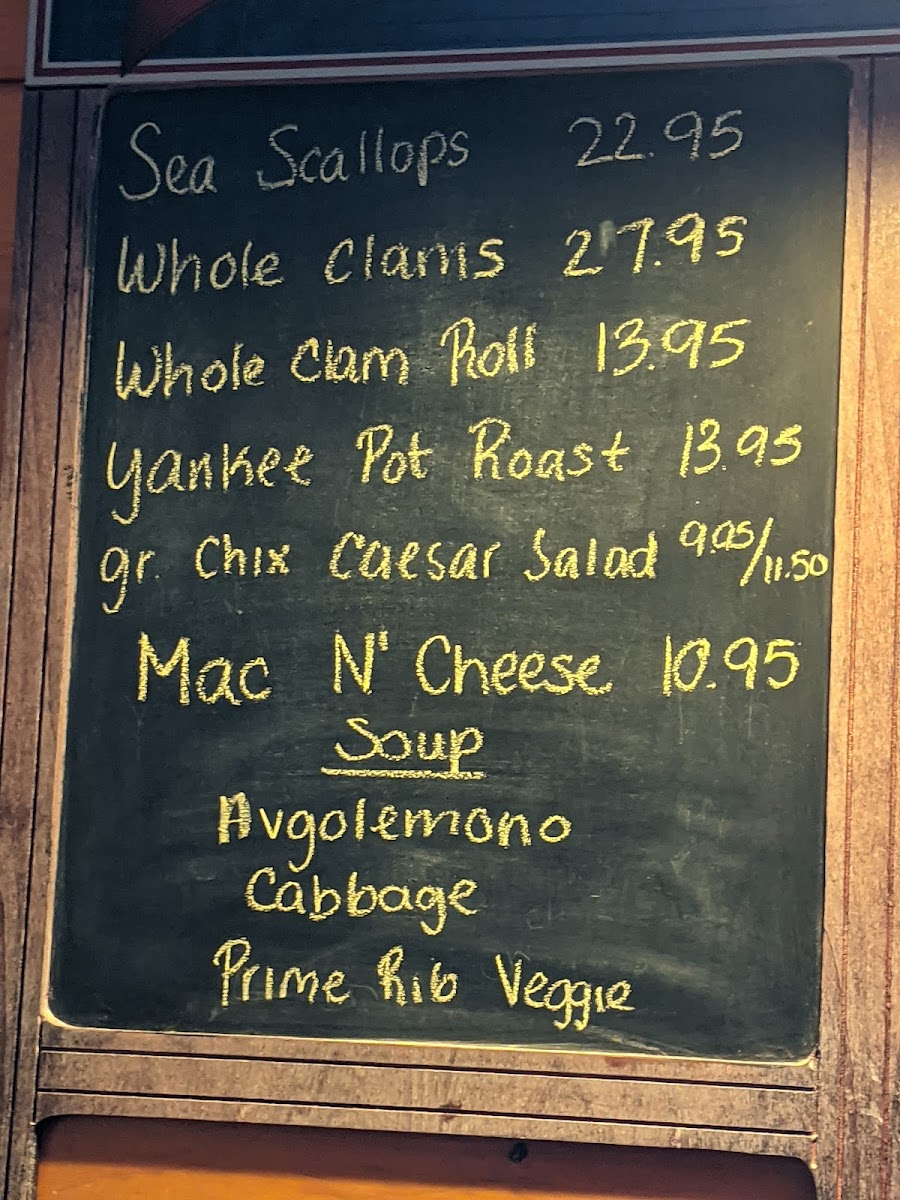 Sea Scallops 22.95
Whole Clams 27.95
Whole Clam Roll 13.95
Yankee Pot Roast 13.95
gr. Chix Caesar Salad 9.95/11.50
Mac N' Cheese 10.95
Soup
Avgolemono
Cabbage
Prime Rib Veggie